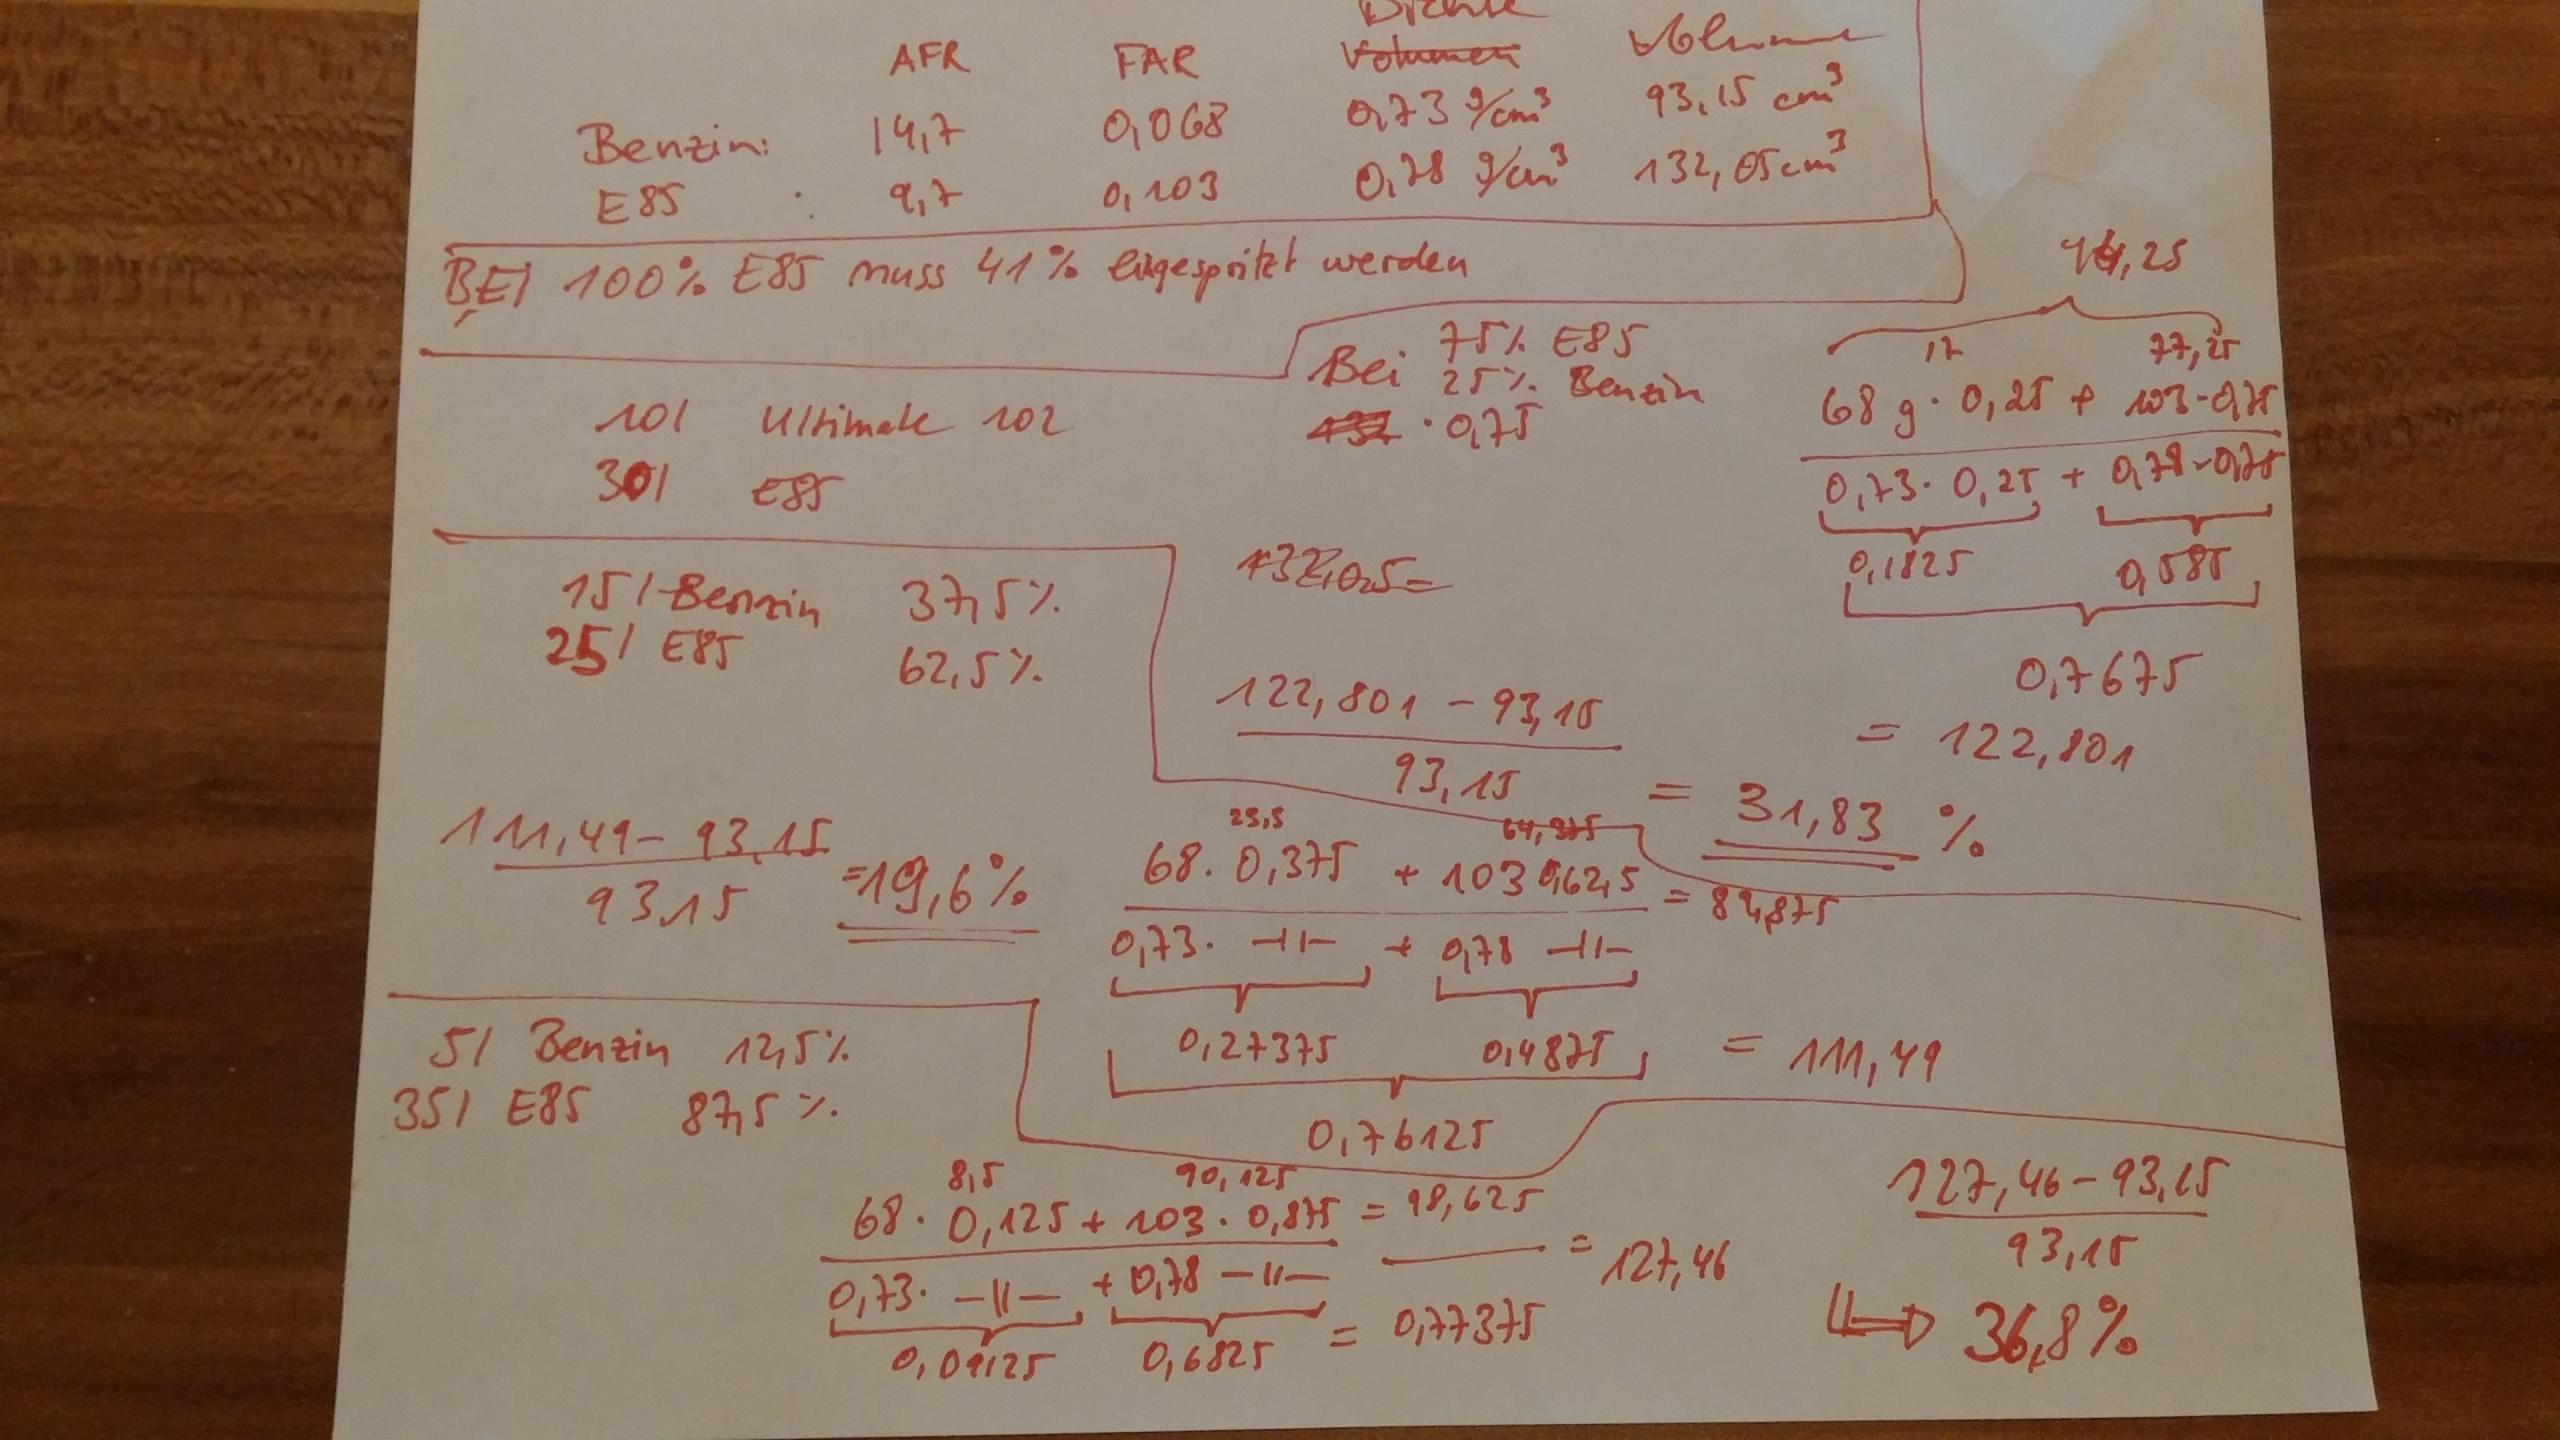 Dichte
AFR FAR Volumen Volumen
Benzin: 14,7 0,068 0,73 g/cm³ 93,15 cm³
E85 : 9,7 0,103 0,78 g/cm³ 132,05cm³
BEI 100% E85 muss 41% eingespritzt werden
10l Ultimate 102
30l E85
Bei 75% E85
25% Benzin
132 · 0,75
94,25
17 77,25
68 g · 0,25 + 103 · 0,75
0,73 · 0,25 + 0,78 · 0,75
0,1825 0,585
0,7675
= 122,801
15l Benzin 37,5%
25l E85 62,5%
132,05=
122,801 - 93,15
93,15
= 31,83 %
25,5 64,375
68 · 0,375 + 103 0,62,5 = 89,875
0,73 · -11- + 0,78 -11-
0,27375 0,4875 = 111,49
0,76125
111,49 - 93,15
93,15
=19,6%
5l Benzin 12,5%
35l E85 87,5%
8,5 90,125
68 · 0,125 + 103 · 0,875 = 98,625
0,73 · -11- + 0,78 -11-
0,09125 0,6825 = 0,77375
= 127,46
127,46 - 93,15
93,15
36,8%